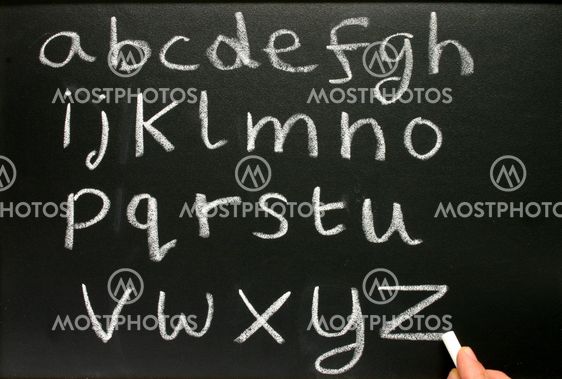 abcdefgh
ijklmno
pqrstu
vwxyz
MOSTPHOTOS MOSTPHOTOS
MOSTPHOTOS MOSTPHOTOS
MOSTPHOTOS MOSTPHOTOS